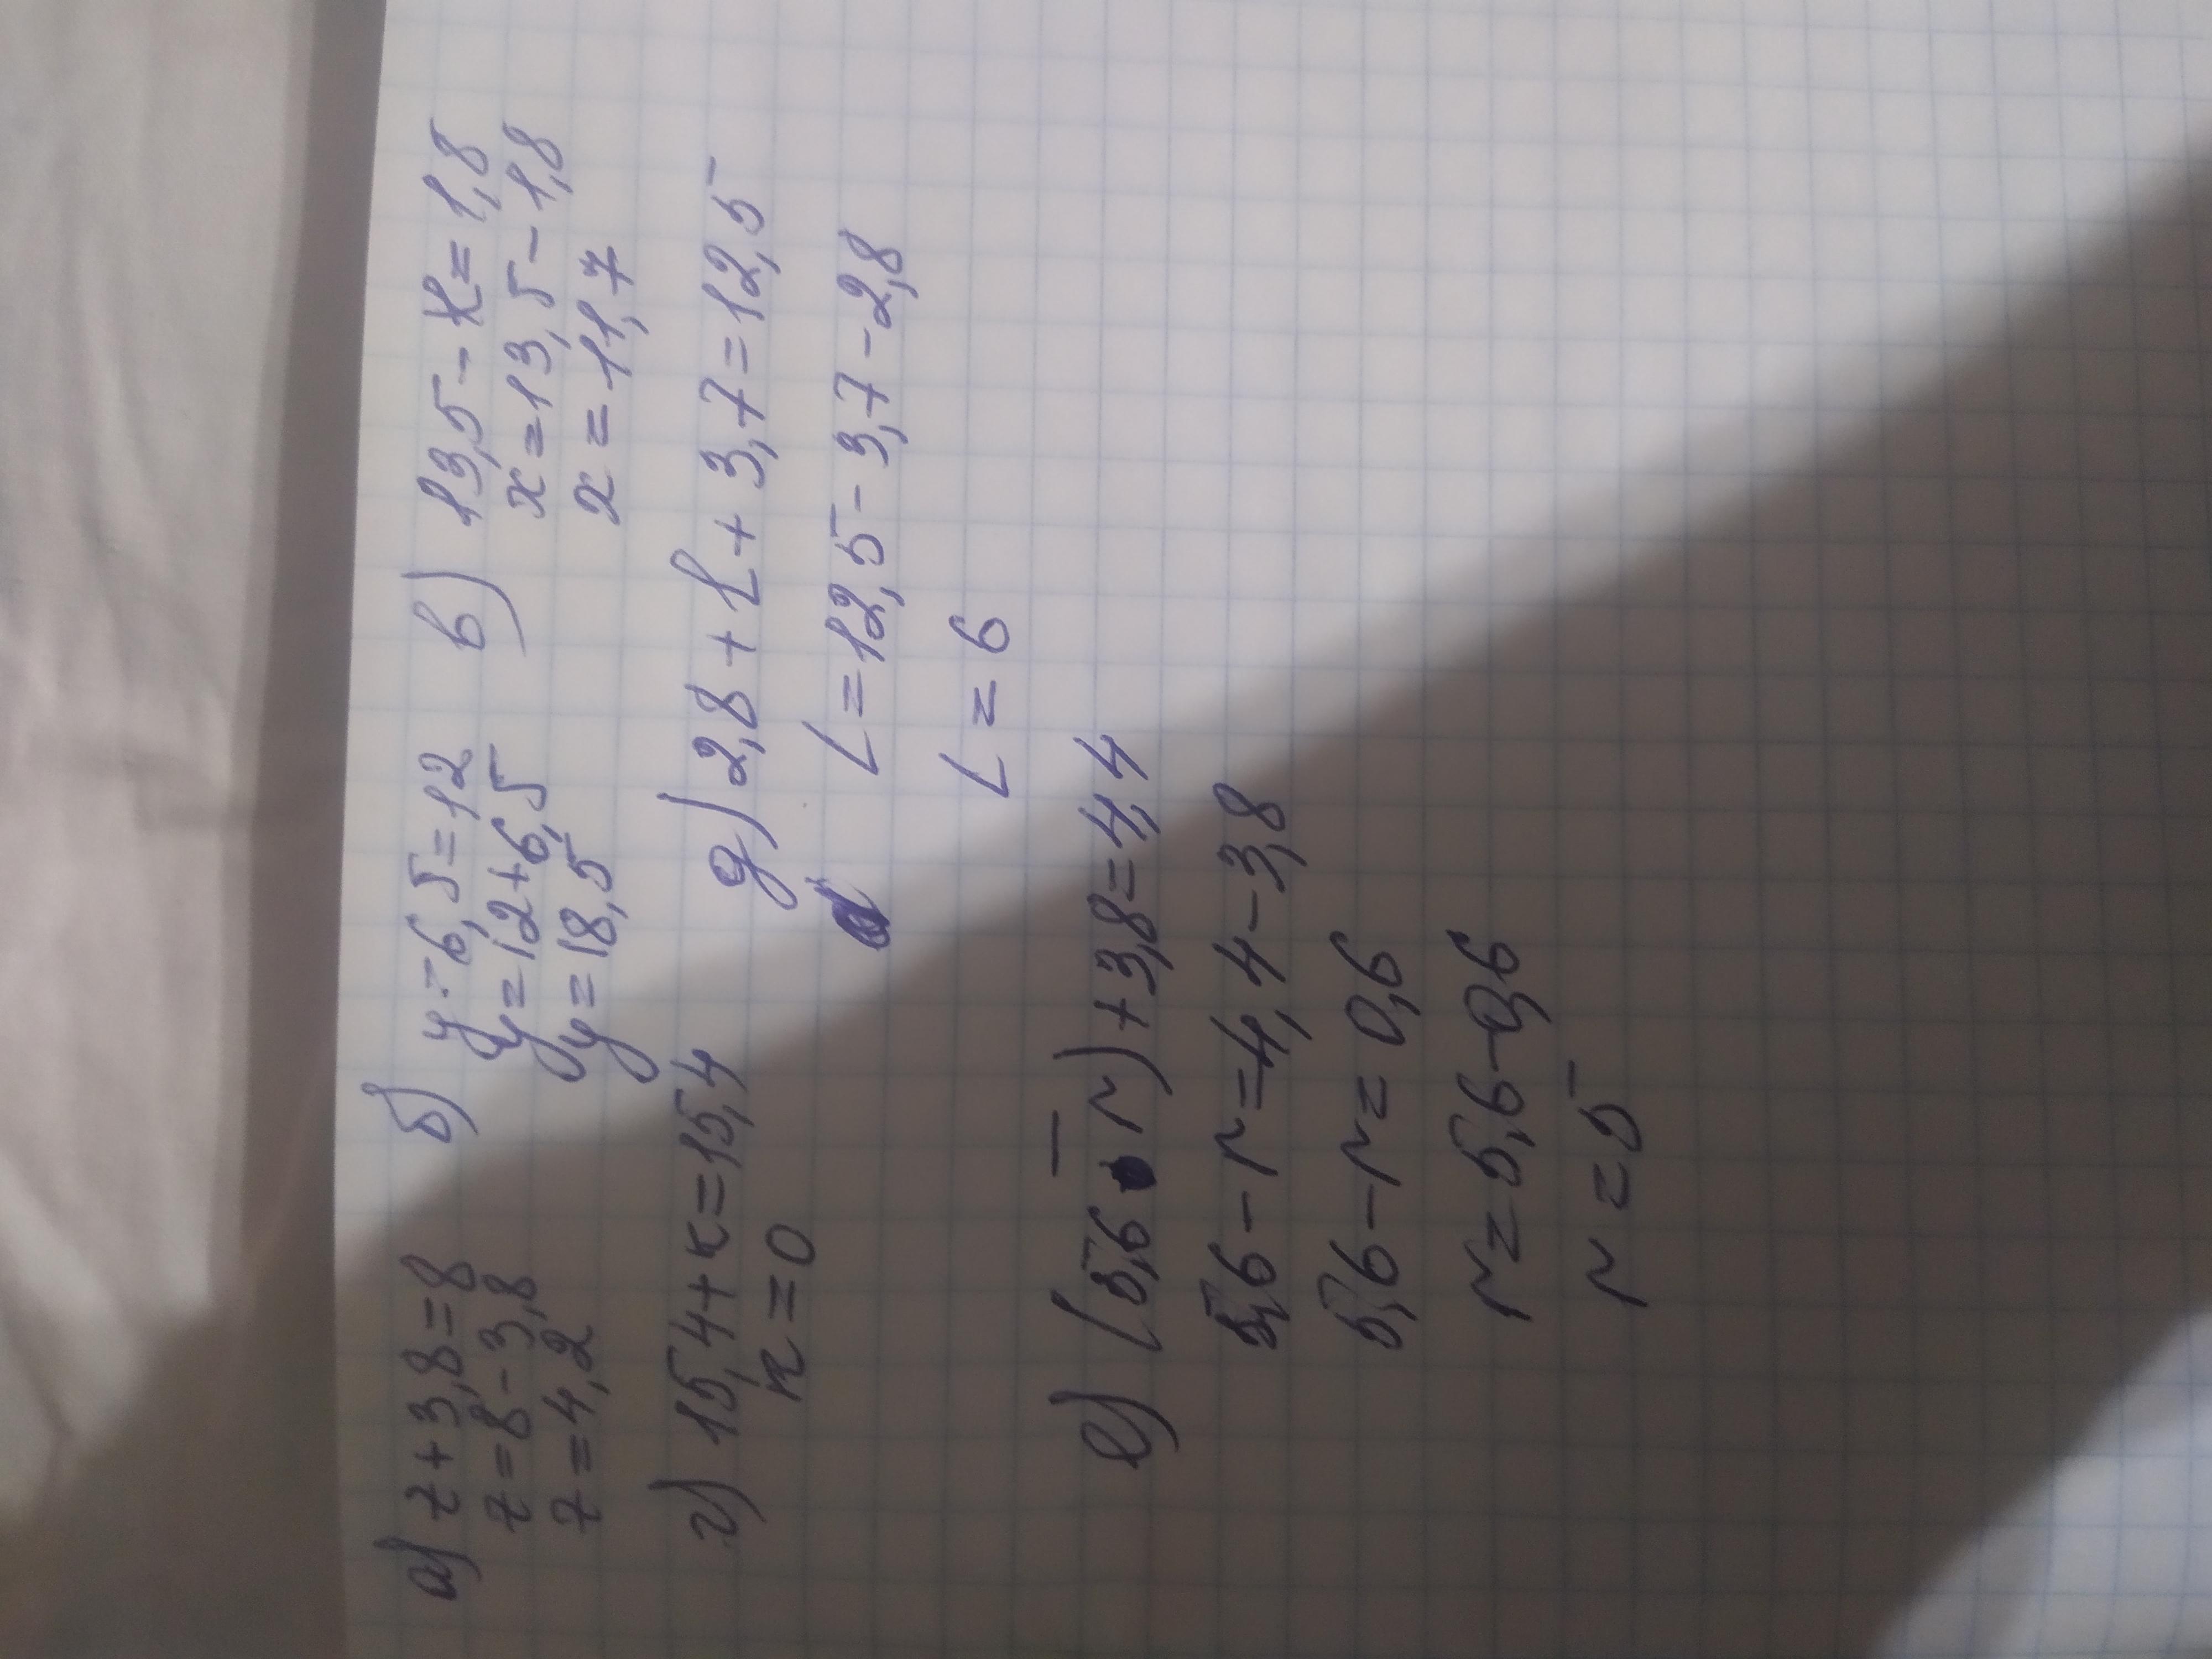 а) z+3,8=8
z=8-3,8
z=4,2
б) y-6,5=12
y=12+6,5
y=18,5
в) 13,5-x=1,8
x=13,5-1,8
x=11,7
г) 15,4+к=15,4
к=0
д) 2,8+l+3,7=12,5
L=12,5-3,7-2,8
L=6
е) (5,6-r)+3,8=4,4
5,6-r=4,4-3,8
5,6-r=0,6
r=5,6-0,6
r=5